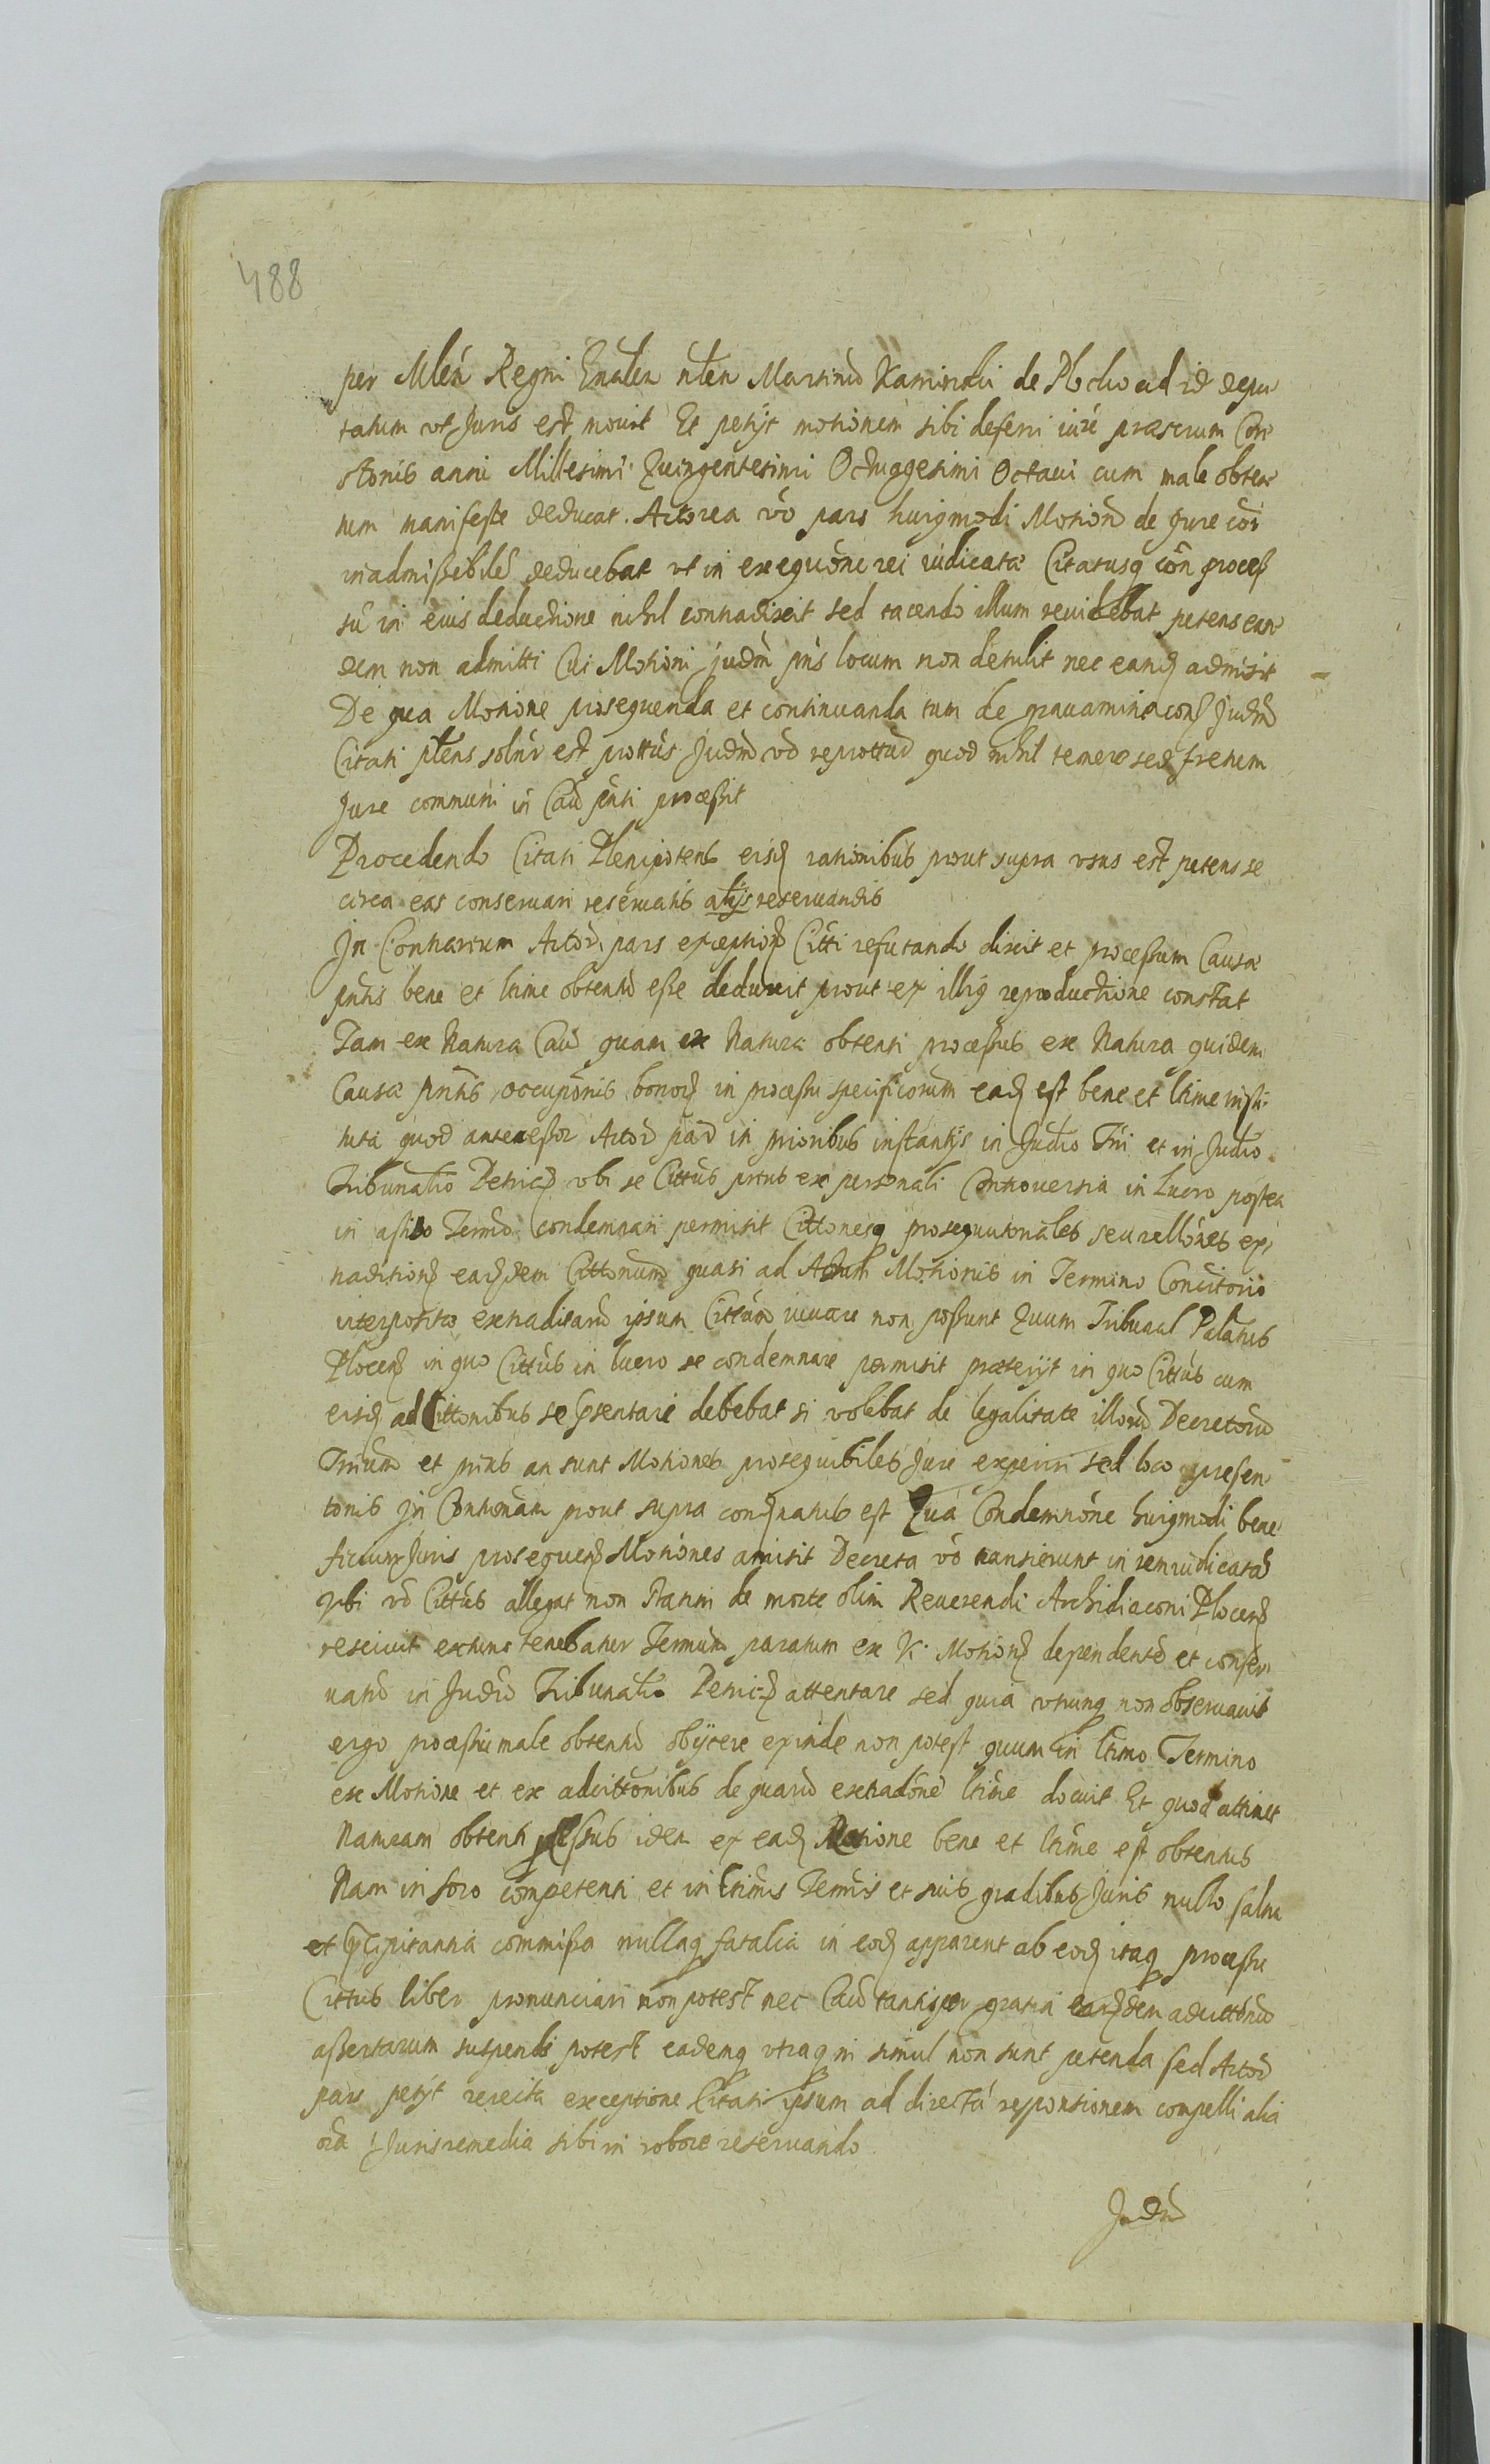 488
per Mlem Regni Gnalem nlem Martinū Kaminski de Plocko ad id depu
tatum vt Juris est mouit Et petijt motionem sibi deferri iure praeserum Con
stonis anni Millesimi Quingentesimi Octuagesimi Octaui cum male obten
tum manifeste deducat. Actorea vō pars huigmodi Motionē de Jure
inadmissibilē deducebat vt in exequōne rei iudicatæ Citatusq con process
su in eius deductione nihil contradixit sed tacendo illum reuidebat petens ean
dem non admitti Cui Motioni Judm pns locum non detulit nec eandē admisit
De qua Motione prosequenda et continuanda tum de grauamine contra Judm
Citati plens solnr est prottūs Judm vō reprottūd quod nihil temere sed fretum
Jure communi in Caū pnti processit
Procedendo Citati Plenipotens eisdē rationibus prout supra vsus est petens se
circa eas conseruari reseruatis alijs reseruandis
In Contrarium Actōr pars exceptionē Citti refutando dixit et processum Causæ
pntis bene et ltime obtentū esse deduxit prout ex illiq reproductione constat
Tam ex Natura Caū quam ex Natura obtenti processus ex Natura quidem
Causæ pntis occupōnis bonorū in processu specificorum eadē est bene et ltime insti
tuta quod antecessor Actor pār in prioribus instantijs in Judio Tri et in Judio
Tribunalio Petric vbi se Cittus pntus ex personali Controuersia in Lucro postea
in assito Termō condemnari permisit Cittonesq prosequutonales seu rellones ex
traditionē earūdem Cittonum quasi ad Actum Motionis in Termino Concitorio
interposito extraditarū ipsum Cittum iuuare non possunt Quum Tribunal Palatus
Plocen in quo Cittus in lucro se condemnare permisit præterijt in quo Cittus cum
eisdē adCittonibus se psentare debebat si volebat de legalitate illorū Decretorū
Trium et prius an sunt Motiones prosequibiles Jure experiri sed loco presen
tonis in Contumām prout supra condnatus est Qua Condemnōne huigmodi bene
ficium Juris prosequendē Motiones amisit Decreta vō transierunt in rem iudicatā
Vbi vō Cittus allegat non statim de morte olim Reuerendi Archidiaconi Plocen
resciuit extunc tenebatur Termum paratum ex Vi Motionē dependente et conser
uato in Judio Tribunalio Petric attentare sed quia vtrunq non obseruauit
ergo processu male obtento obijcere exinde non potest quum in ltimo Termino
ex Motione et ex adcittonibus de quarū extradōne ltime docuit Et quod attinet
Naturam obtenti pcessus idem ex eadē Motione bene et ltime est obtentus
Nam in foro competenti et in ltimis Termis et suis gradibus Juris nullo saltu
et pcipitantia commissa nullaq fatalia in eodē apparent ab eodē itaq processu
Cittus liber pronunciari non potest nec Caū tantisper gratia earūdem adcittōnū
assertarum suspendi potest eademq vtraq ni simul non sunt petenda sed Actōr
pars petijt reiecta exceptione Citati ipsum ad directā responsionem compelli alia
oīa Juris remedia sibi in robore reseruando
Judm